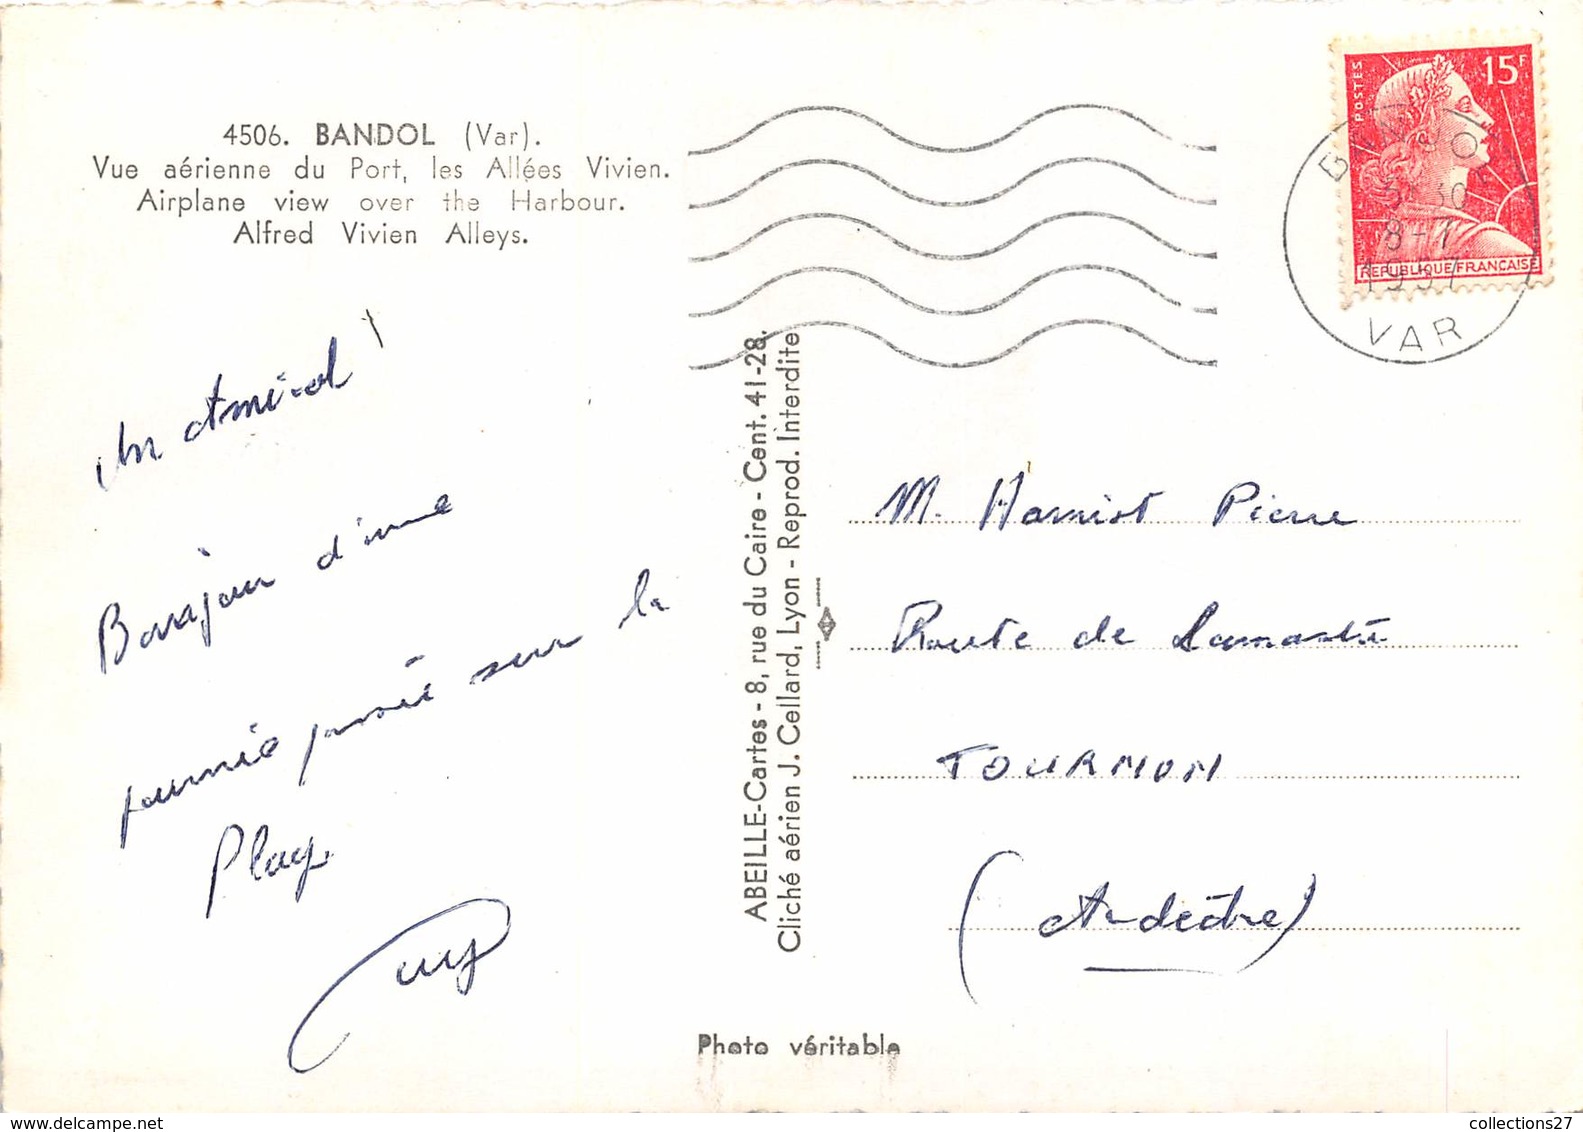 4506. BANDOL (Var).
Vue aérienne du Port, les Allées Vivien.
Airplane view over the Harbour.
Alfred Vivien Alleys.
Un Amical
Bonjour d'une
journée passée sur la
Plage
Guy
ABEILLE-Cartes - 8, rue du Caire - Cent. 41-28.
Cliché aérien J. Cellard, Lyon - Reprod. Interdite
POSTES
15F
REPUBLIQUE FRANÇAISE
BANDOL
8-7
1957
VAR
M. Pierre
Route de Lamastre
TOURNON
(Ardèche)
Photo véritable
collections27